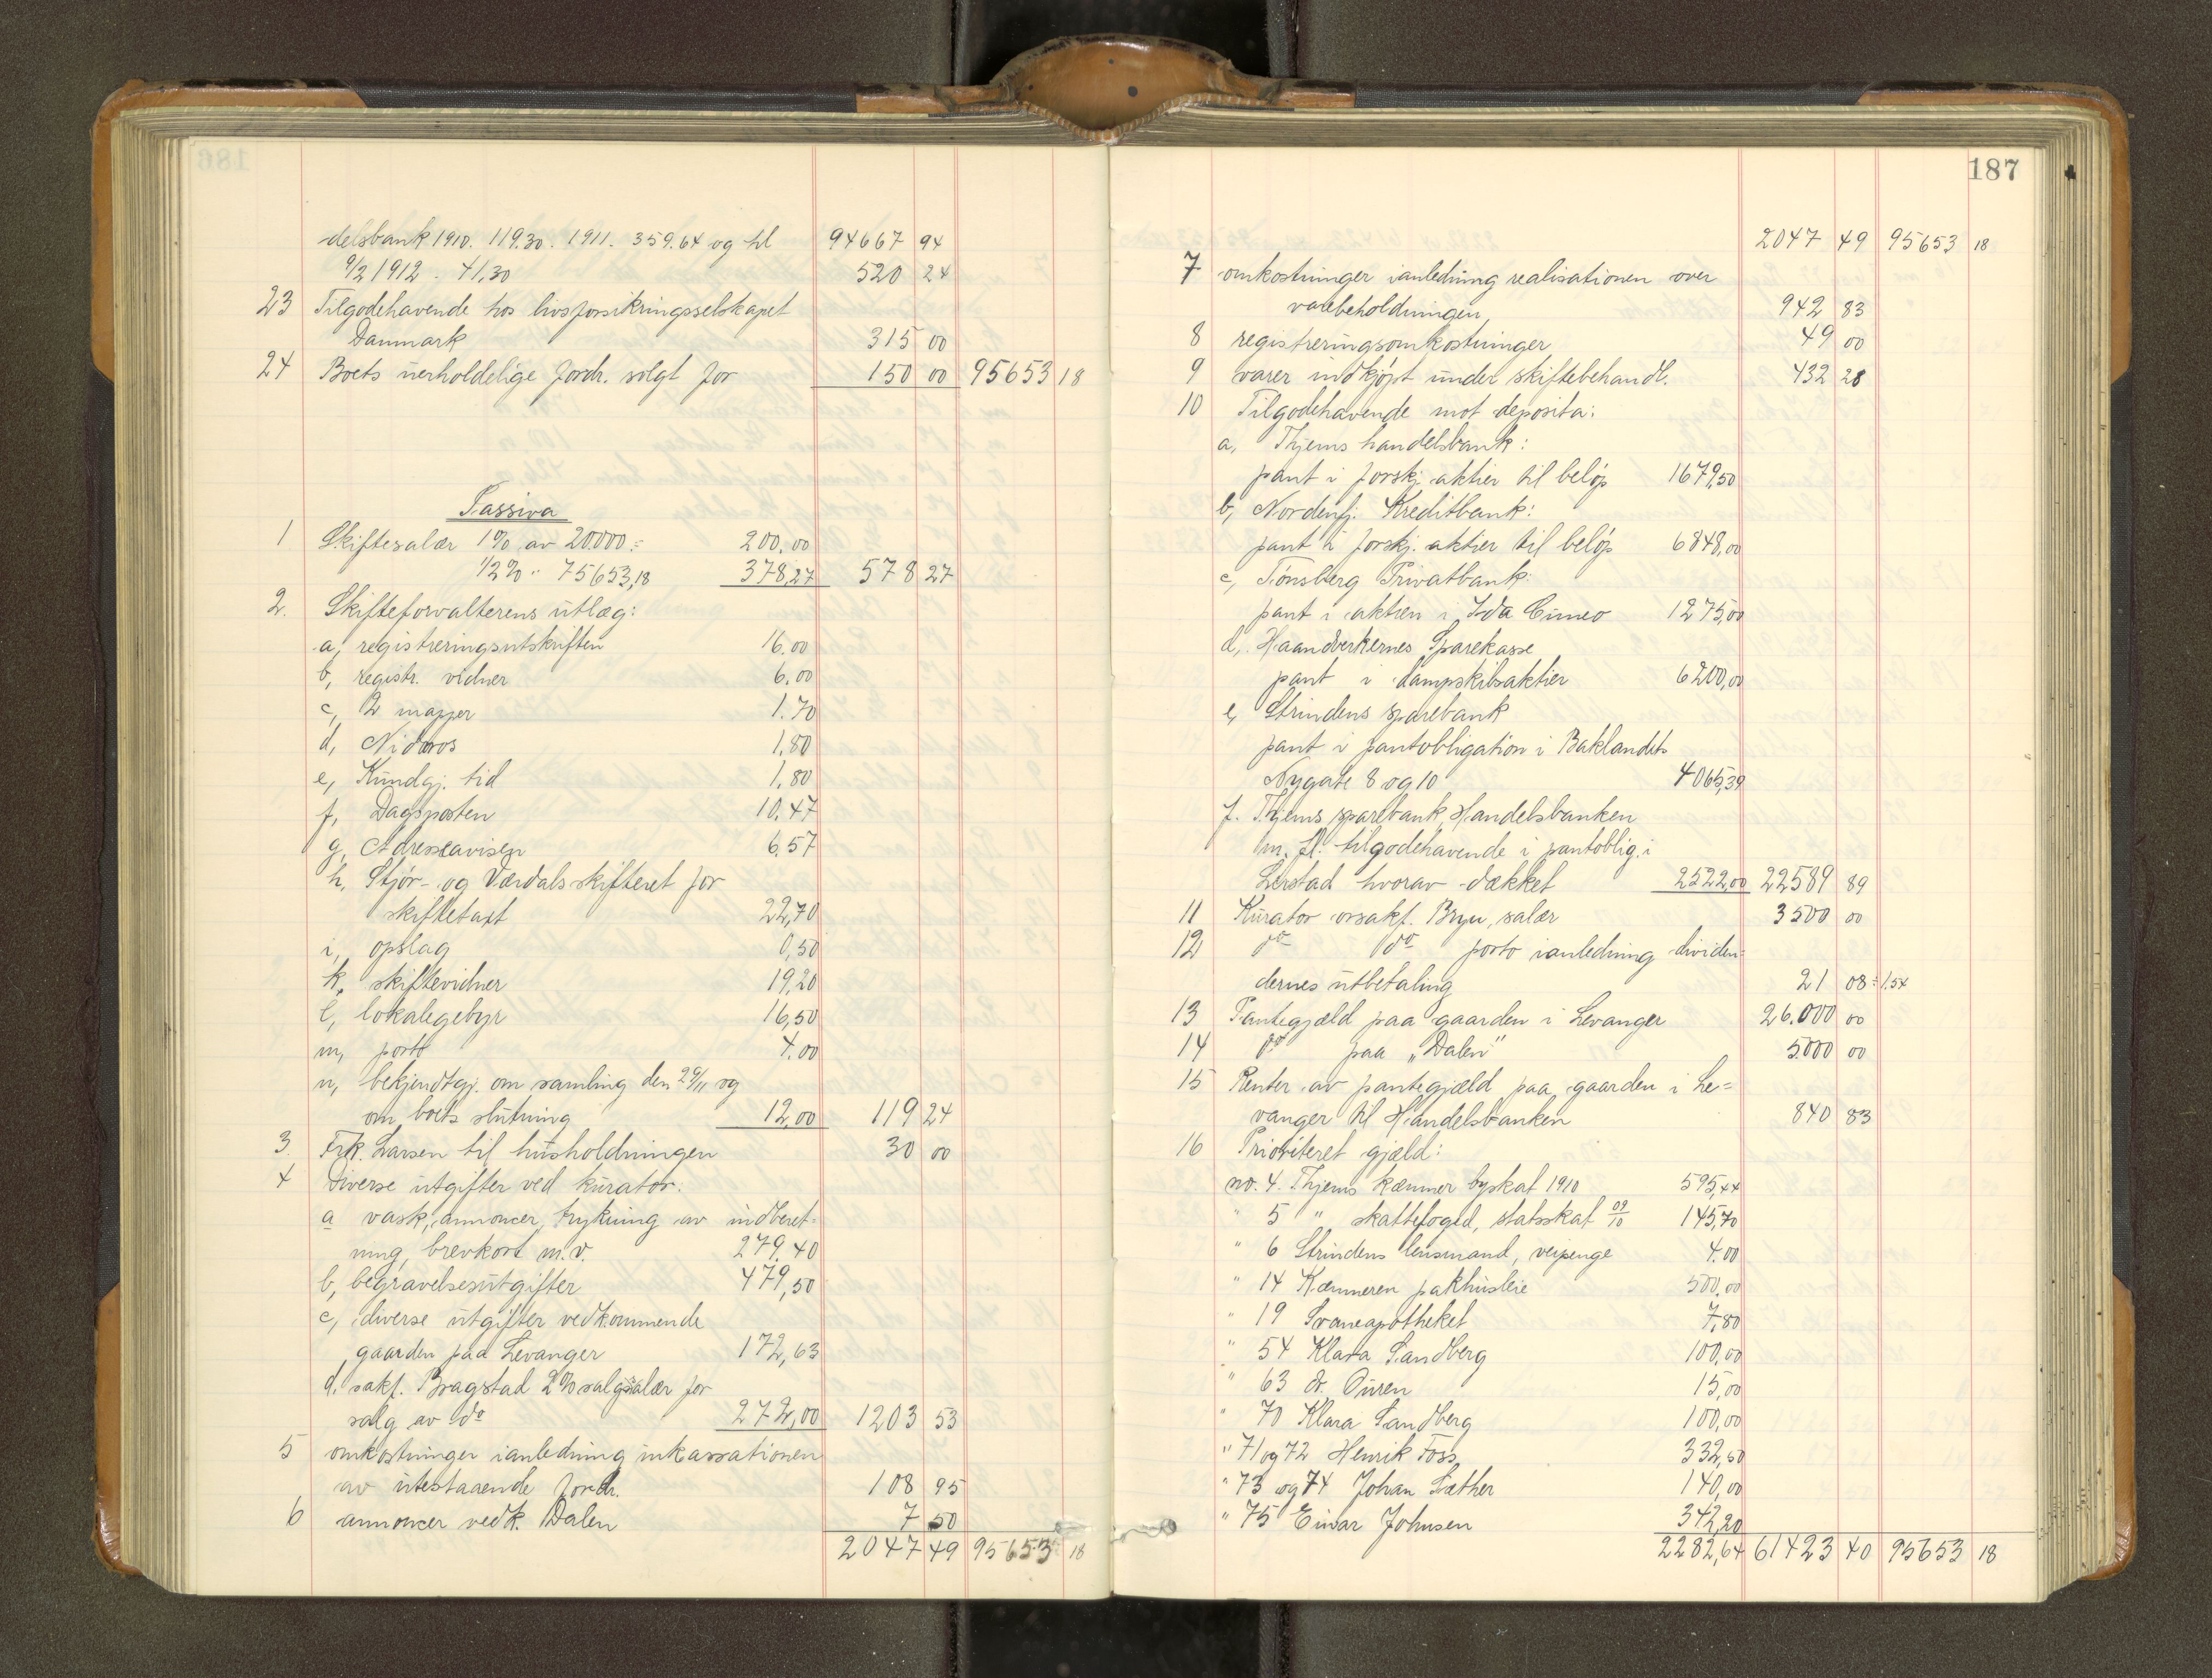 186
delsbank 1910. 119.30. 1911. 359.64 og til 94667 94
9/2 1912. 41,30 520 24
23 Tilgodehavende hos livsforsikringsselskapet
Danmark 315 00
24 Boets uerholdelige fordr. solgt for 150 00 95653 18
Passiva
1 Skiftesalær 1% av 20000.= 200.00
1/2% " 75653,18 378,27 578 27
2. Skifteforvalterens utlæg:
a, registreringsutskriften 16.00
b, registr. vidner 6.00
c, 2 mapper 1.70
d, Nidaros 1.80
e, Kundgj. tid 1.80
f, Dagsposten 10.47
g, Adresseavisen 6.57
h, Stjør- og Værdals skifteret for
skiftetaxt 22,70
i, opslag 0,50
k, skiftevidner 19,20
l, lokalegebyr 16,50
m, porto 4.00
n, bekjendtgj. om samling den 29/11 og
om boets slutning 12,00 119 24
3. Frk. Larsen til husholdningen 30 00
4 Diverse utgifter ved kurator.
a vask, annoncer, trykning av indberet=
ning, brevkort m.v. 279.40
b, begravelsesutgifter 479,50
c, diverse utgifter vedkommende
gaarden paa Levanger 172,63
d. sakf. Bragstad 2% salgssalær for
salg av do 272,00 1203 53
5 omkostninger ianledning inkassationen
av utestaaende fordr. 108 95
6 annoncer vedk. Dalen 7 50
2047 49 95653 18
187
2047 49 95653 18
7 omkostninger ianledning realisationen over
varebeholdningen 942 83
8 registreringsomkostninger 49 00
9 varer indkjøpt under skiftebehandl. 432 28
10 Tilgodehavende mot deposita:
a, Thjems handelsbank:
pant i forskj. aktier til beløp 1679,50
b, Nordenfj. Kreditbank:
pant i forskj. aktier til beløp 6848,00
c, Tønsberg Privatbank:
pant i aktien i Ida Cuneo 1275,00
d, Haandverkernes Sparekasse
pant i dampskibsaktier 6200,00
e, Strindens sparebank
pant i pantobligation i Baklandets
Nygate 8 og 10 4065,39
f. Thjems sparebank, Handelsbanken
m. fl. tilgodehavende i pantoblig. i
Lerstad hvorav dækket 2522,00 22589 89
11 Kurator orsakf. Bryn, salær 3500 00
12 do do porto ianledning dividen=
dernes utbetaling 21 08 ÷ 1.54
13 Pantegjæld paa gaarden i Levanger 26.000 00
14 do paa "Dalen" 5000 00
15 Renter av pantegjæld paa gaarden i Le=
vanger til Handelsbanken 840 83
16 Prioriteret gjæld:
no. 4. Thjems kæmner byskat 1910 595,44
" 5 " skattefoged, statsskat 09/10 145,70
" 6 Strindens lensmand, veipenge 4.00
" 14 Kæmneren pakhusleie 500,00
" 19 Svaneapotheket 7,80
" 54 Klara Sandberg 100,00
" 63 dr. Ouren 15,00
" 70 Klara Sandberg 100,00
" 71 og 72 Henrik Foss 332,50
" 73 og 74 Johan Sæther 140,00
" 75 Einar Johnsen 342,20
2282,64 61423 40 95653 18